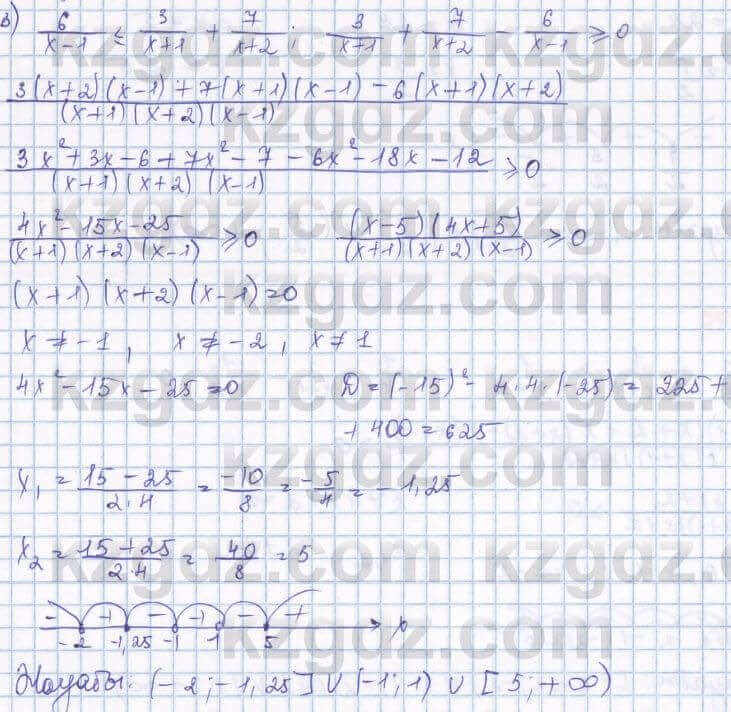 в) 6/(x-1) ≤ 3/(x+1) + 7/(x+2); 3/(x+1) + 7/(x+2) - 6/(x-1) ≥ 0
(3(x+2)(x-1)+7(x+1)(x-1)-6(x+1)(x+2))/((x+1)(x+2)(x-1))
(3x²+3x-6+7x²-7-6x²-18x-12)/((x+1)(x+2)(x-1)) ≥ 0
(4x²-15x-25)/((x+1)(x+2)(x-1)) ≥ 0 ((x-5)(4x+5))/((x+1)(x+2)(x-1)) ≥ 0
(x+1)(x+2)(x-1)=0
x ≠ -1, x ≠ -2, x ≠ 1
4x²-15x-25=0 D=(-15)²-4·4·(-25)=225+
+400=625
x₁ = (15-25)/(2·4) = -10/8 = -5/4 = -1,25
x₂ = (15+25)/(2·4) = 40/8 = 5
- + - + - +
-2 -1,25 -1 1 5 x
Жауабы: (-2;-1,25] ∪ (-1;1) ∪ [5;+∞)
kzgdz.com